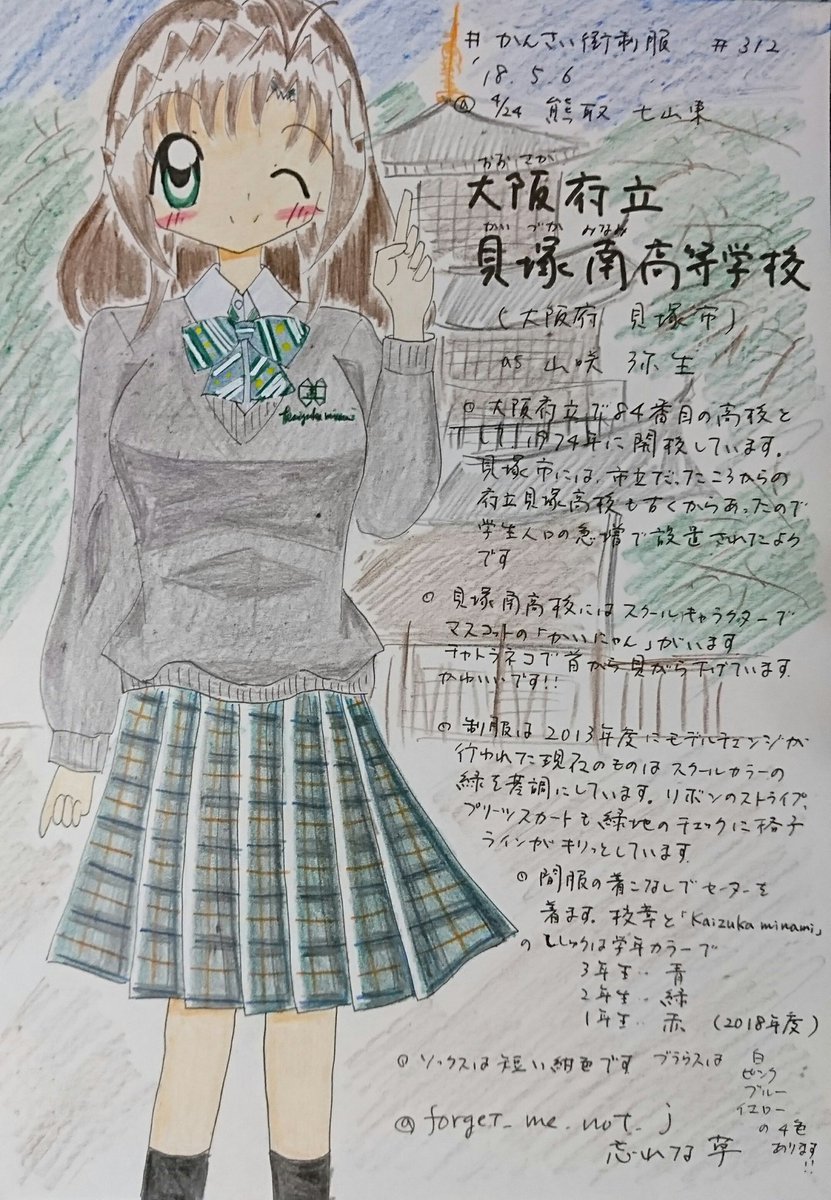 # かんさい街制服 #312
'18.5.6
@ 4/24 熊取 七山東
おおさか
大阪府立
かいづかみなみ
貝塚南高等学校
(大阪府 貝塚市)
as 山咲 弥生
○ 大阪府立で84番目の高校と
し、1974年に開校しています。
貝塚市には、市立だったころからの
府立貝塚高校も古くからあったので
学生人口の急増で設置されたよう
です
○ 貝塚南高校にはスクールキャラクターで
マスコットの「かいにゃん」がいます
チャトラネコで首から貝がら下げています
かわいいです!!
○ 制服は2013年度にモデルチェンジが
行われた現在のものはスクールカラーの
緑を基調にしています。リボンのストライプ、
プリーツスカートも緑地のチェックに格子
ラインがキリっとしています。
○ 間服の着こなしでセーターを
着ます。校章と「Kaizuka minami」
のししゅうは学年カラーで
3年生‥青
2年生‥緑
1年生‥赤 (2018年度)
○ ソックスは短い紺色です ブラウスは
白
ピンク
ブルー
イエロー
の4色
あります!!
@forget_me_not_j
忘れな草
Kaizuka minami